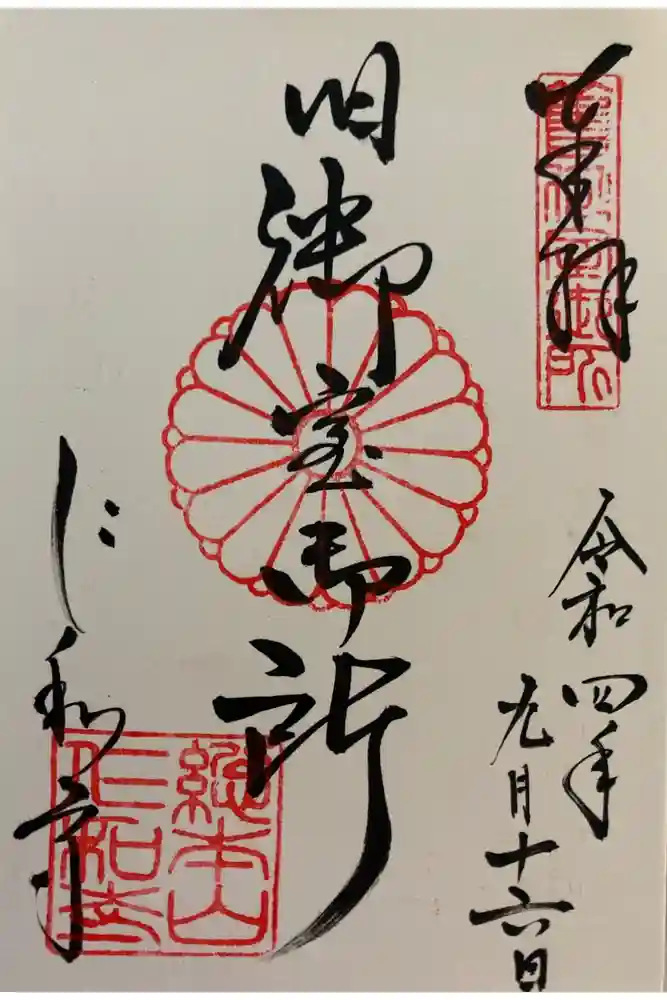 奉拝
令和四年
九月十六日
旧御室御所
仁和寺
総本山
仁和寺